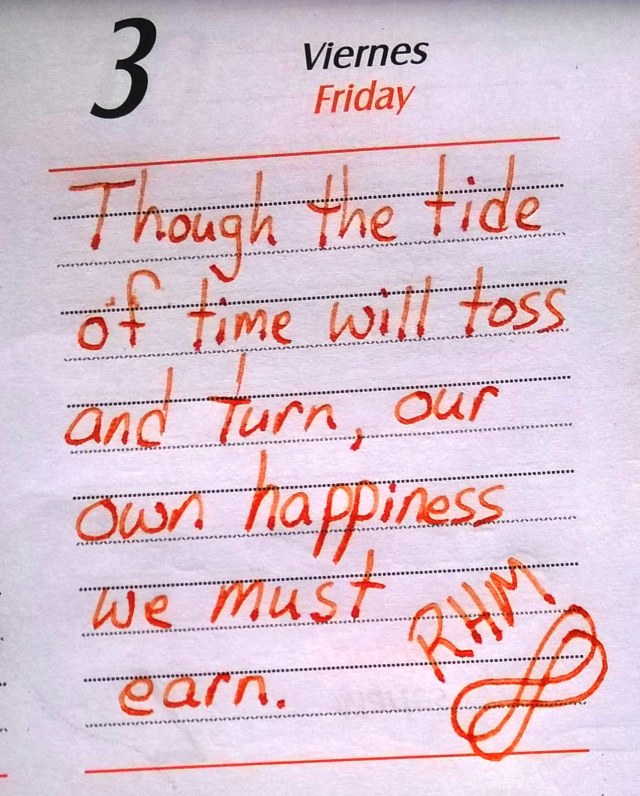 3
Viernes
Friday
Though the tide
of time will toss
and turn, our
own happiness
we must
earn.
RHM